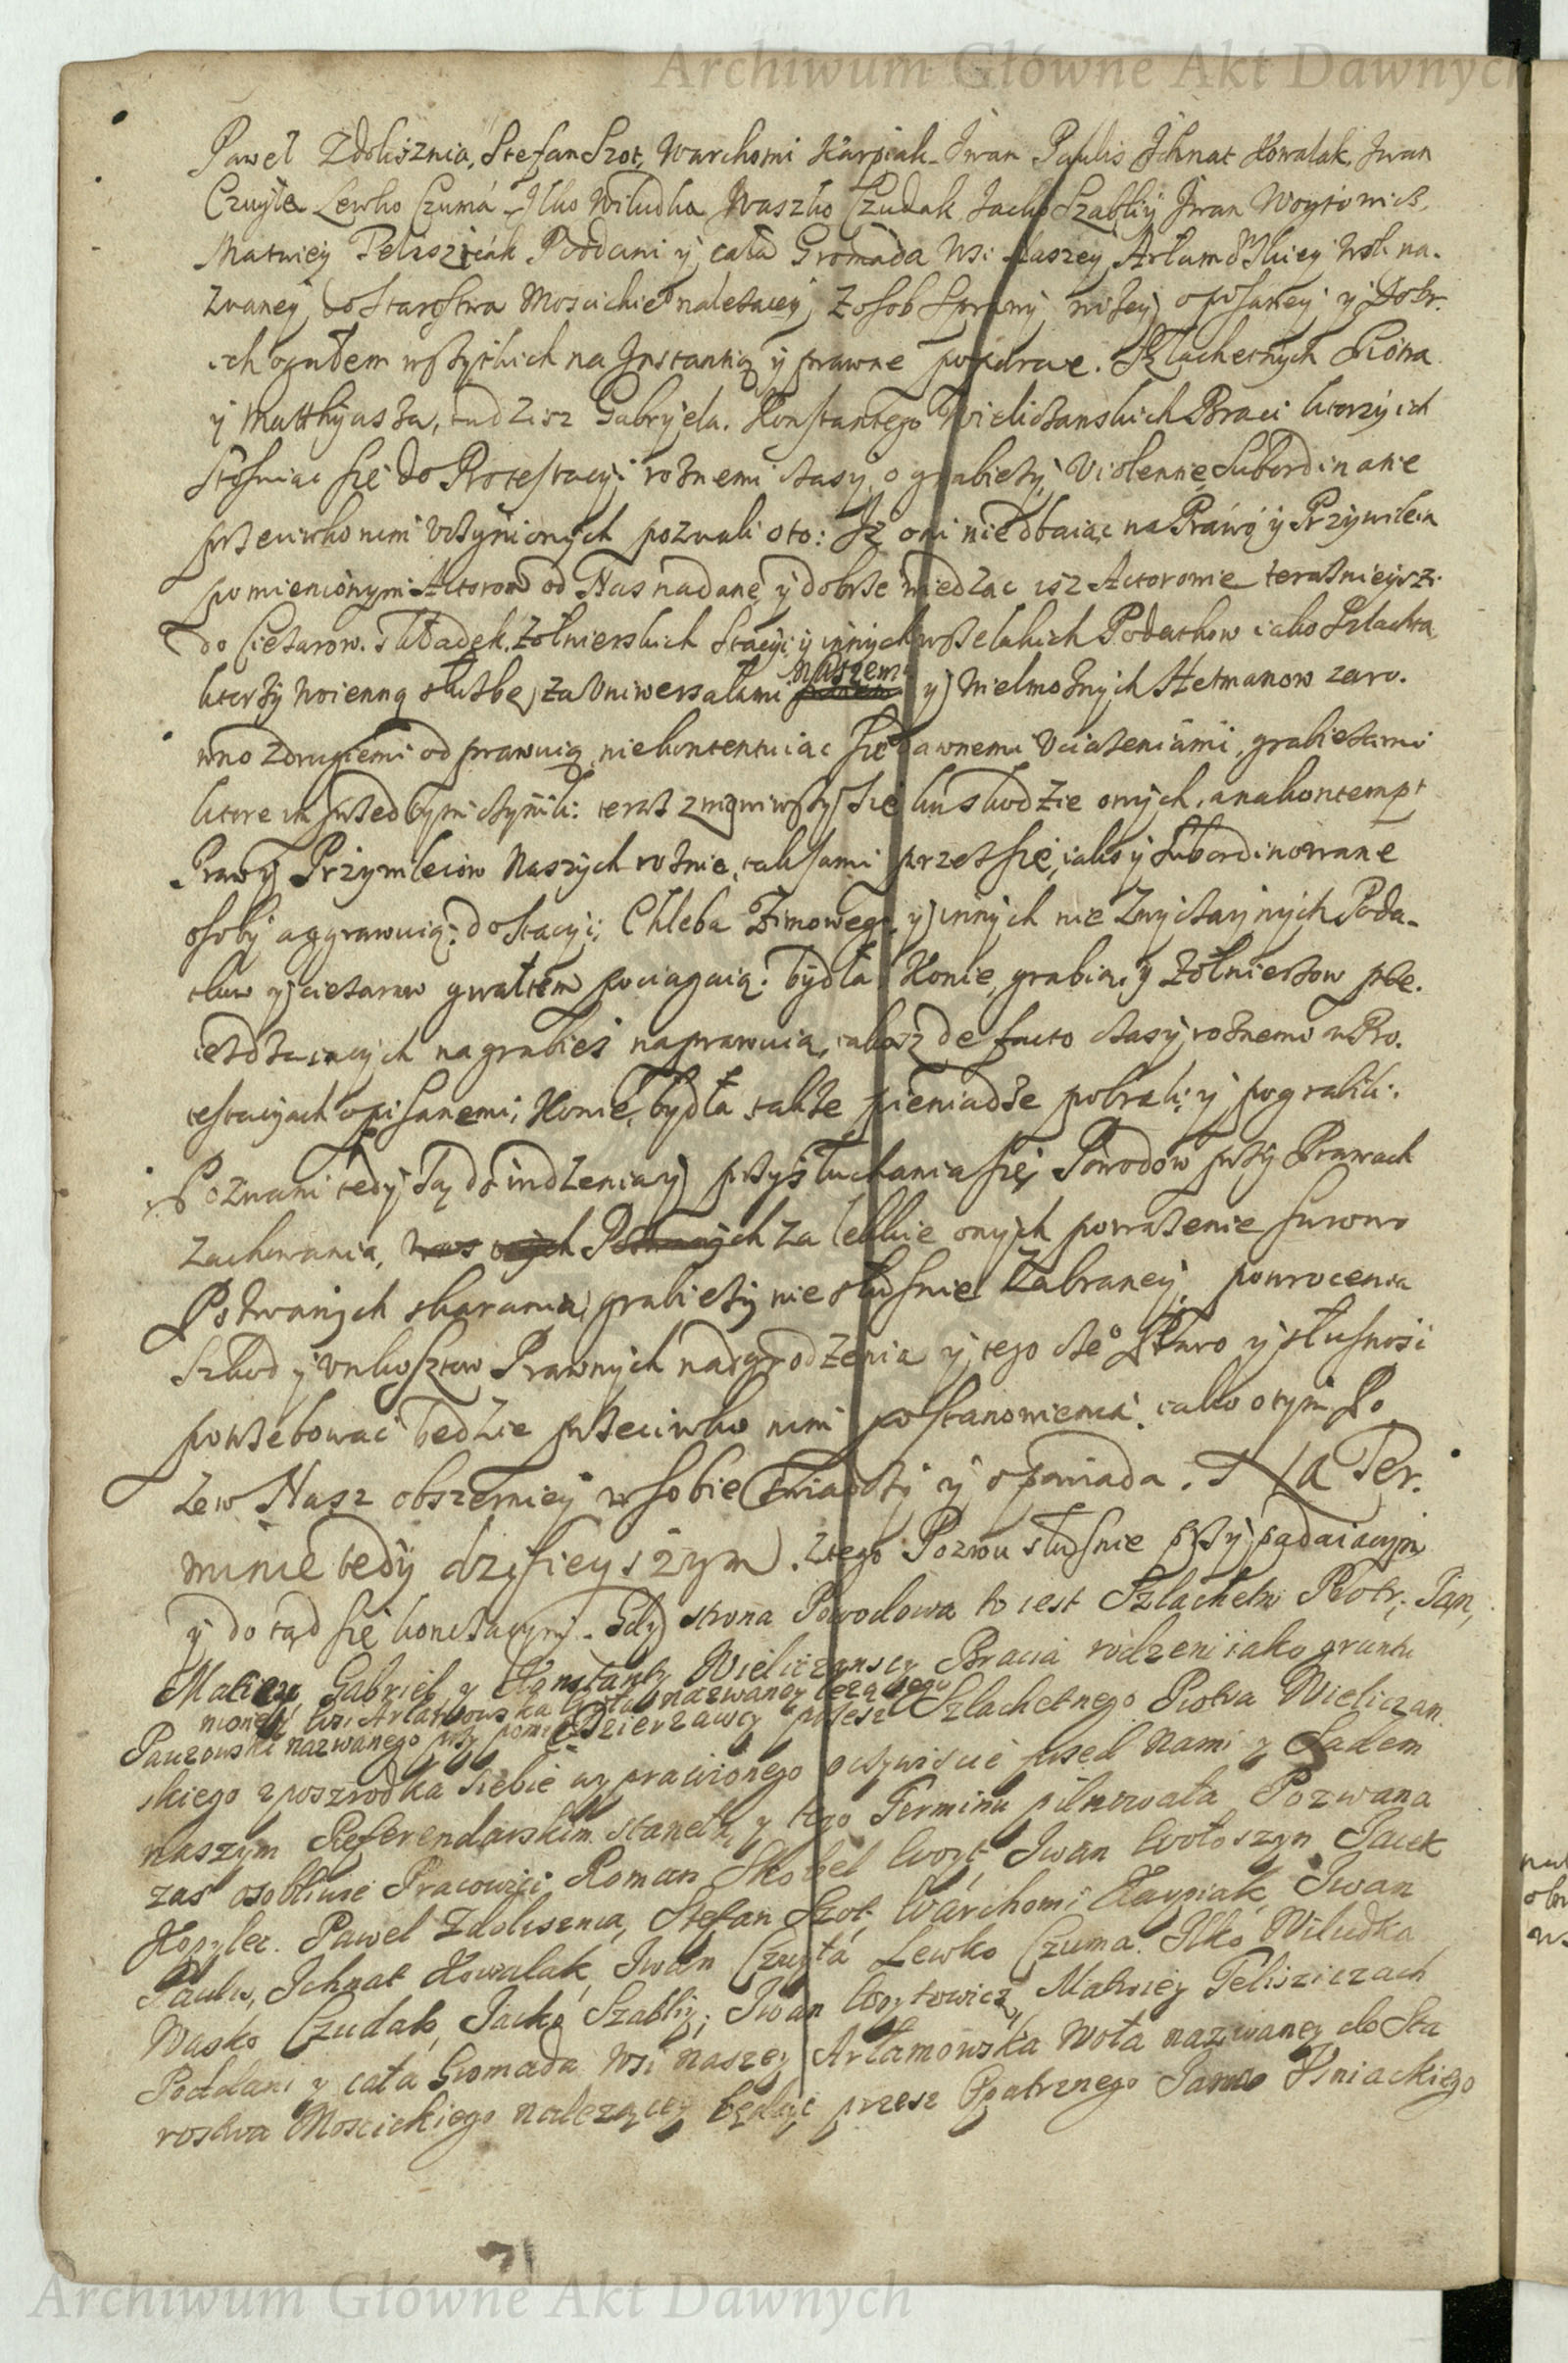 Archiwum Główne Akt Dawnych
Paweł Zdolisznia, Stefan Szot, Warchomi Karpiak Iwan Paulis Ichnat Kowalak, Iwan
Czuyta Lewko Czuma Ilko Wiludka Waszko Czudak Iacko Szabliy Iwan Woytowicz,
Matwiey Telisziczak Poddani y cała Gromada Wsi Naszey Artamowskiey Woli na-
zwaney do Starostwa Mościckie° należącey, z osob sprawy niżey opisaney y Dobr
ich ogułem wszytkich na Instantią y prawne poparcie. Szlachetnych Piotra
y Matthyasza, tudziesz Gabryela, Konstantego Wieliczanskich Braci ktorzy ich
stosuiąc się do Protestacyi rożnemi czasy o grabieży, Violenne Subordinatie
przeciwko nim uczynionych pozwali oto: Iż oni niedbaiąc na Prawo y Przywileia
pomienionym Actorom od Nas nadane, y dobrze wiedząc isz Actorowie teraznieyszi
do Ciężarow, składek, Żołnierskich Stacyi y innych wszelakich Podatkow iako Szlachta
ktorzy woienną służbę za Uniwersałami naszemi y Wielmożnych Hetmanow zaro-
wno z drugiemi odprawuią, niekontentuiąc się dawnemi uciążeniami, grabieżami
ktore im przedtym czynili: teraz zmowiwszy się ku szkodzie onych, a na kontempt
Praw y Przywileiow Naszych rożnie, tak sami przez się, iako y subordinowane
osoby aggrawuią: do stacyi, Chleba Zimowego, y innych nie zwyczaynych Poda-
tkow y ciężarow gwałtem pociągaią: bydła, Konie, grabią, y Żołnierzow prze-
ieżdżaiących na grabież naprawuią, iakosz de facto czasy rożnemi w Pro-
testacyiach opisanemi, Konie, bydła także pieniądze pobrali y pograbili.
Pozwani tedy są do widzenia y przysłuchania się Powodow przy Prawach
zachowania, za lekkie onych poważenie surowo
Pozwanych skarania, grabieży niesłusznie zabraney, powrocenia
szkod y unkosztow Prawnych nadgrodzenia y tego cze° Prawo y słuszność
potrzebować będzie przeciwko nim postanowienia, iako o tym Po
zew Nasz obszerniey w sobie świadczy y opowiada. Na Ter-
minie tedy dzisieyszym z tego Pozwu słusznie przypadaiącym
y dotąd się kontynuiącym. Gdy strona Powodowa to iest Szlachetni Piotr, Jan,
Maciey, Gabriel y Konstanty Wieliczanscy Bracia rodzeni iako gruntu
Pauzowski nazwanego przy pomienioney Wsi Artamowska Wola nazwaney leżącego
Dzierżawcy przesz Szlachetnego Piotra Wieliczan
skiego z poszrodka siebie wyprawionego oczywiście przed Nami y Sądem
naszym Referendarskim stanęła y tego Terminu pilnowała Pozwana
zaś osobliwie Pracowici Roman Skobel Woyt, Iwan Wołoszyn Jacek
Kopylec. Paweł Zdolisznia, Stefan Szot, Warchomi Karpiak, Iwan
Paulis, Ichnat Kowalak, Iwan Czuyta Lewko Czuma. Ilko Wiludka
Wasko Czudak, Jacko Szabliy, Iwan Woytowicz, Matwiey Telisziczach
Poddani y cała Gromada Wsi naszey Artamowska Wola nazwaney do Sta
rostwa Mościckiego należącey będąc przesz Opatrznego Jana Pśniackiego
Archiwum Główne Akt Dawnych